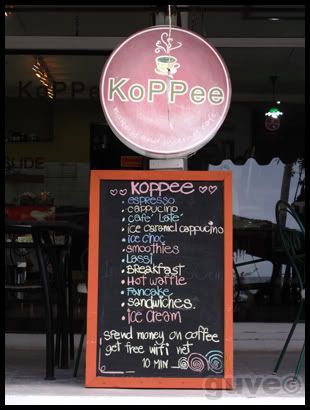 KoPPee
SLIDE
koppee
espresso
cappucino
cafe' late'
ice caramel cappucino
ice choc
smoothies
Lassi
Breakfast
Hot waffle
Pancake
sandwiches.
ice cream
spend money on coffee
get free wifi net
10 MIN
guve©